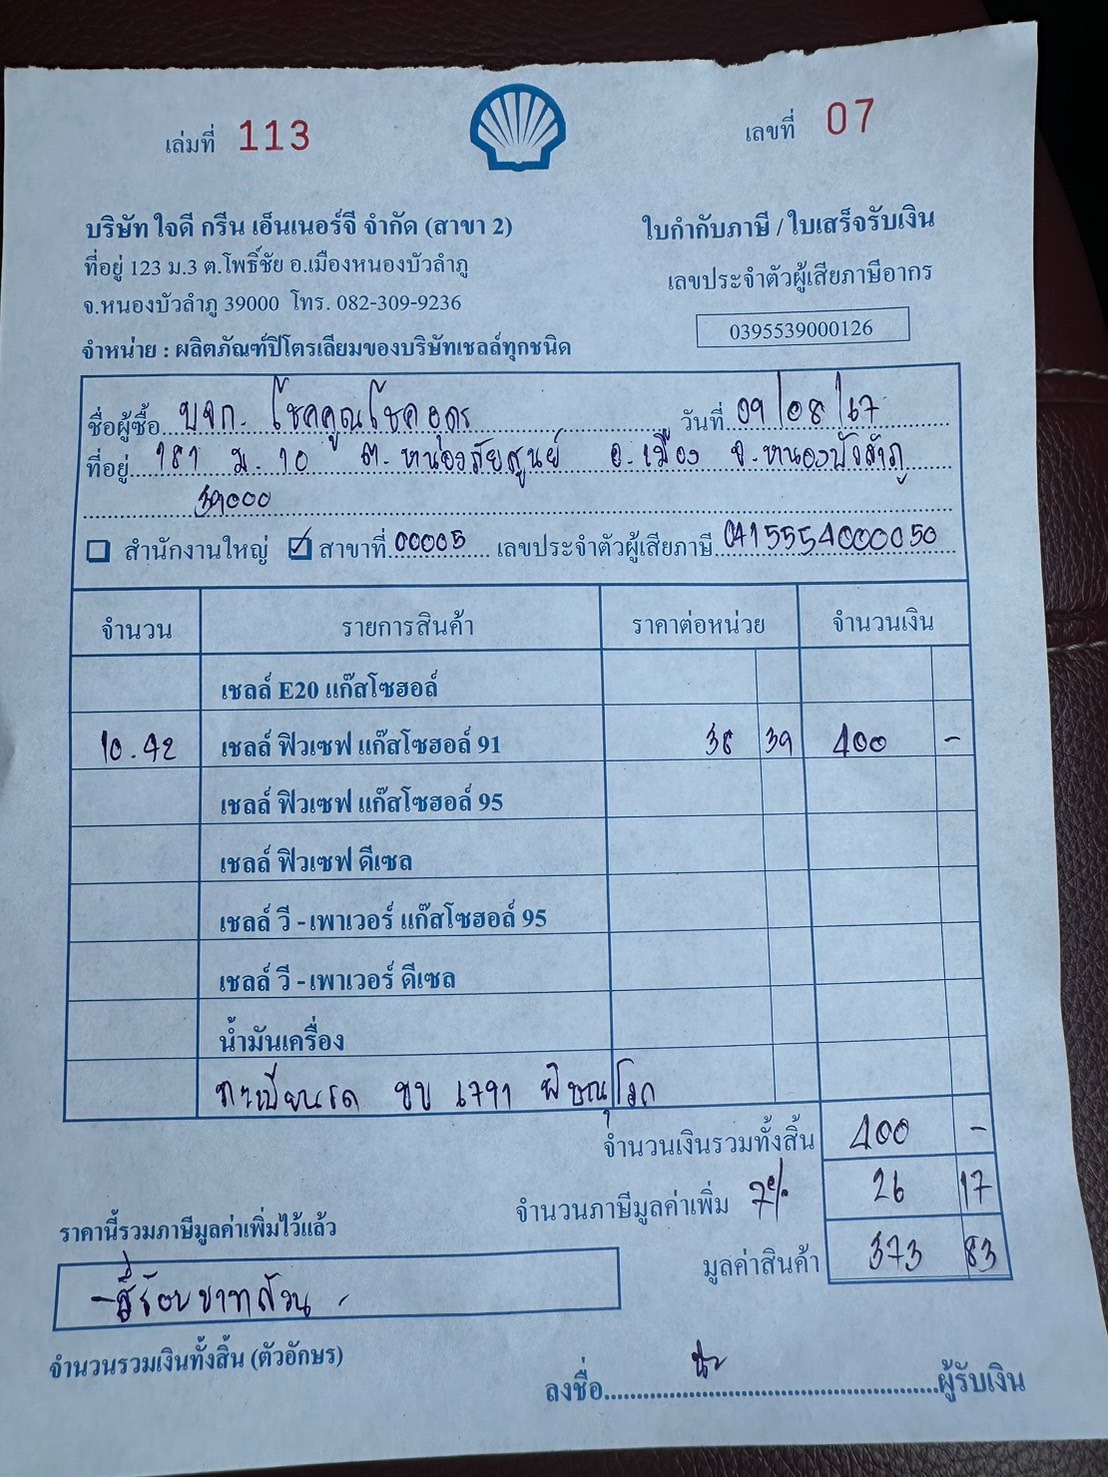 เล่มที่ 113
เลขที่ 07
บริษัท ใจดี กรีน เอ็นเนอร์จี จำกัด (สาขา 2)
ใบกำกับภาษี / ใบเสร็จรับเงิน
ที่อยู่ 123 ม.3 ต.โพธิ์ชัย อ.เมืองหนองบัวลำภู
เลขประจำตัวผู้เสียภาษีอากร
จ.หนองบัวลำภู 39000 โทร. 082-309-9236
0395539000126
จำหน่าย : ผลิตภัณฑ์ปิโตรเลียมของบริษัทเชลล์ทุกชนิด
ชื่อผู้ซื้อ บจก. โชคคูณโชค อุดร วันที่ 09/08/67
ที่อยู่ 181 ม.10 ต.หนองภัยศูนย์ อ.เมือง จ.หนองบัวลำภู
39000
สำนักงานใหญ่ ✓ สาขาที่ 00005 เลขประจำตัวผู้เสียภาษี 0415554000050
จำนวน รายการสินค้า ราคาต่อหน่วย จำนวนเงิน
เชลล์ E20 แก๊สโซฮอล์
10.42 เชลล์ ฟิวเซฟ แก๊สโซฮอล์ 91 38 39 400 -
เชลล์ ฟิวเซฟ แก๊สโซฮอล์ 95
เชลล์ ฟิวเซฟ ดีเซล
เชลล์ วี - เพาเวอร์ แก๊สโซฮอล์ 95
เชลล์ วี - เพาเวอร์ ดีเซล
น้ำมันเครื่อง
ทะเบียนรถ ขข 1791 พิษณุโลก
จำนวนเงินรวมทั้งสิ้น 400 -
จำนวนภาษีมูลค่าเพิ่ม 7% 26 17
ราคานี้รวมภาษีมูลค่าเพิ่มไว้แล้ว
มูลค่าสินค้า 373 83
- สี่ร้อยบาทถ้วน -
จำนวนรวมเงินทั้งสิ้น (ตัวอักษร)
ลงชื่อ ผู้รับเงิน